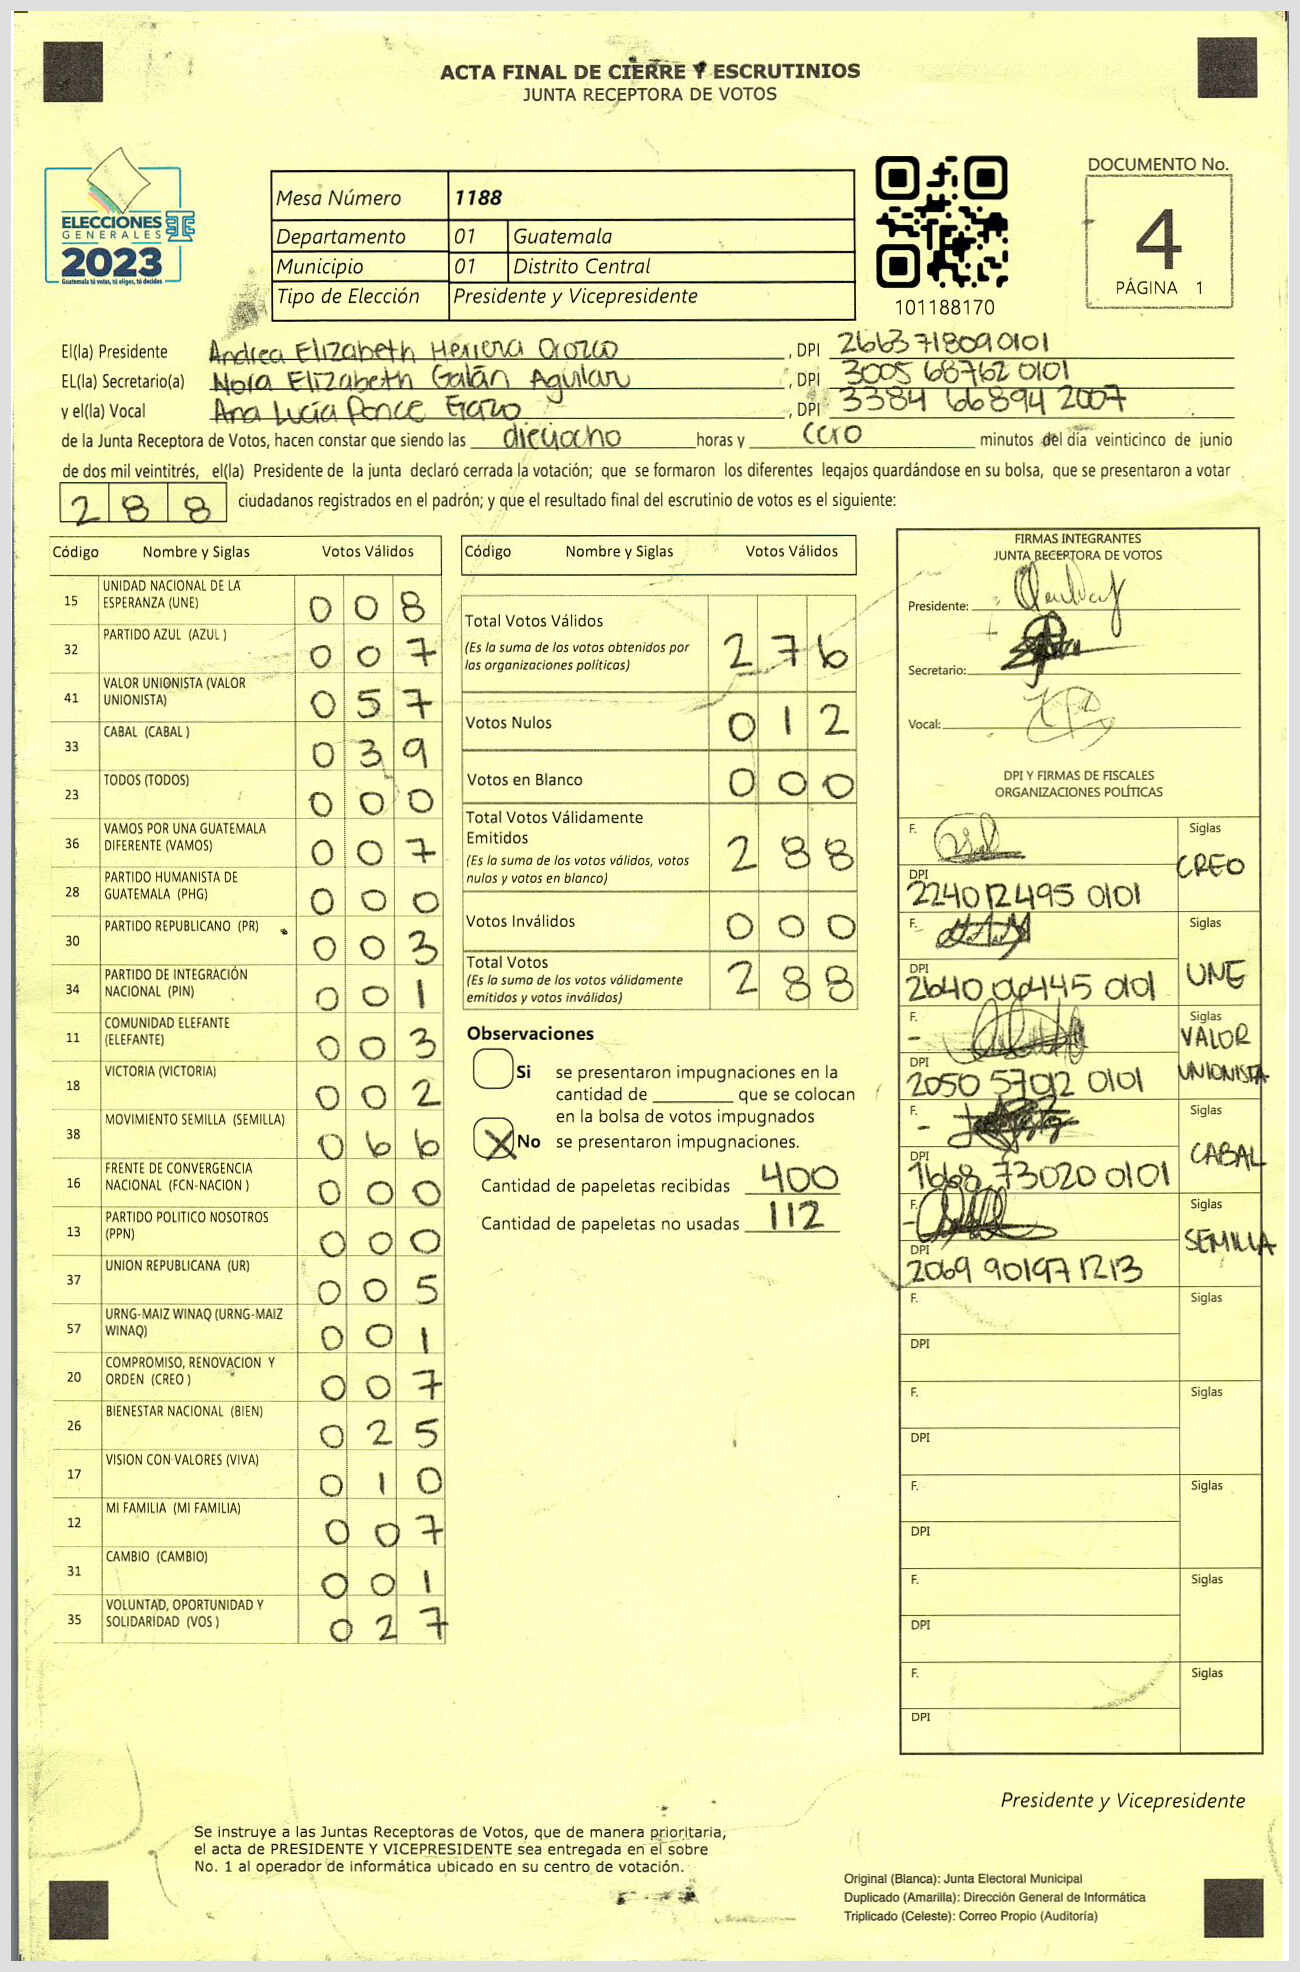 ACTA FINAL DE CIERRE Y ESCRUTINIOS
JUNTA RECEPTORA DE VOTOS
ELECCIONES
GENERALES
2023
Guatemala tú votas, tú eliges, tú decides
Mesa Número 1188
Departamento 01 Guatemala
Municipio 01 Distrito Central
Tipo de Elección Presidente y Vicepresidente
101188170
DOCUMENTO No.
4
PÁGINA 1
El(la) Presidente Andrea Elizabeth Herrera Orozco, DPI 2663718090101
EL(la) Secretario(a) Nora Elizabeth Galán Aguilar, DPI 3005 68762 0101
y el(la) Vocal Ana Lucía Ponce, DPI 3384 66894 2007
de la Junta Receptora de Votos, hacen constar que siendo las dieciocho horas y cero minutos del día veinticinco de junio
de dos mil veintitrés, el(la) Presidente de la junta declaró cerrada la votación; que se formaron los diferentes legajos quardándose en su bolsa, que se presentaron a votar
288 ciudadanos registrados en el padrón; y que el resultado final del escrutinio de votos es el siguiente:
Código Nombre y Siglas Votos Válidos
15 UNIDAD NACIONAL DE LA
ESPERANZA (UNE) 008
32 PARTIDO AZUL (AZUL ) 007
41 VALOR UNIONISTA (VALOR
UNIONISTA) 057
33 CABAL (CABAL ) 039
23 TODOS (TODOS) 000
36 VAMOS POR UNA GUATEMALA
DIFERENTE (VAMOS) 007
28 PARTIDO HUMANISTA DE
GUATEMALA (PHG) 000
30 PARTIDO REPUBLICANO (PR) 003
34 PARTIDO DE INTEGRACIÓN
NACIONAL (PIN) 001
11 COMUNIDAD ELEFANTE
(ELEFANTE) 003
18 VICTORIA (VICTORIA) 002
38 MOVIMIENTO SEMILLA (SEMILLA) 066
16 FRENTE DE CONVERGENCIA
NACIONAL (FCN-NACION ) 000
13 PARTIDO POLITICO NOSOTROS
(PPN) 000
37 UNION REPUBLICANA (UR) 005
57 URNG-MAIZ WINAQ (URNG-MAIZ
WINAQ) 001
20 COMPROMISO, RENOVACION Y
ORDEN (CREO ) 007
26 BIENESTAR NACIONAL (BIEN) 025
17 VISION CON VALORES (VIVA) 010
12 MI FAMILIA (MI FAMILIA) 007
31 CAMBIO (CAMBIO) 001
35 VOLUNTAD, OPORTUNIDAD Y
SOLIDARIDAD (VOS ) 027
Código Nombre y Siglas Votos Válidos
Total Votos Válidos
(Es la suma de los votos obtenidos por
las organizaciones políticas) 276
Votos Nulos 012
Votos en Blanco 000
Total Votos Válidamente
Emitidos
(Es la suma de los votos válidos, votos
nulos y votos en blanco) 288
Votos Inválidos 000
Total Votos
(Es la suma de los votos válidamente
emitidos y votos inválidos) 288
Observaciones
Si se presentaron impugnaciones en la
cantidad de ________ que se colocan
en la bolsa de votos impugnados
X No se presentaron impugnaciones.
Cantidad de papeletas recibidas 400
Cantidad de papeletas no usadas 112
FIRMAS INTEGRANTES
JUNTA RECEPTORA DE VOTOS
Presidente:
Secretario:
Vocal:
DPI Y FIRMAS DE FISCALES
ORGANIZACIONES POLÍTICAS
F. Siglas
CREO
DPI
2240124950101
F. Siglas
UNE
DPI
2640 06445 0101
F. Siglas
VALOR
UNIONISTA
DPI
2050 57012 0101
F. Siglas
CABAL
DPI
1668 73020 0101
F. Siglas
SEMILLA
DPI
2069 90197 1213
F. Siglas
DPI
F. Siglas
DPI
F. Siglas
DPI
F. Siglas
DPI
F. Siglas
DPI
Presidente y Vicepresidente
Se instruye a las Juntas Receptoras de Votos, que de manera prioritaria,
el acta de PRESIDENTE Y VICEPRESIDENTE sea entregada en el sobre
No. 1 al operador de informática ubicado en su centro de votación.
Original (Blanca): Junta Electoral Municipal
Duplicado (Amarilla): Dirección General de Informática
Triplicado (Celeste): Correo Propio (Auditoría)